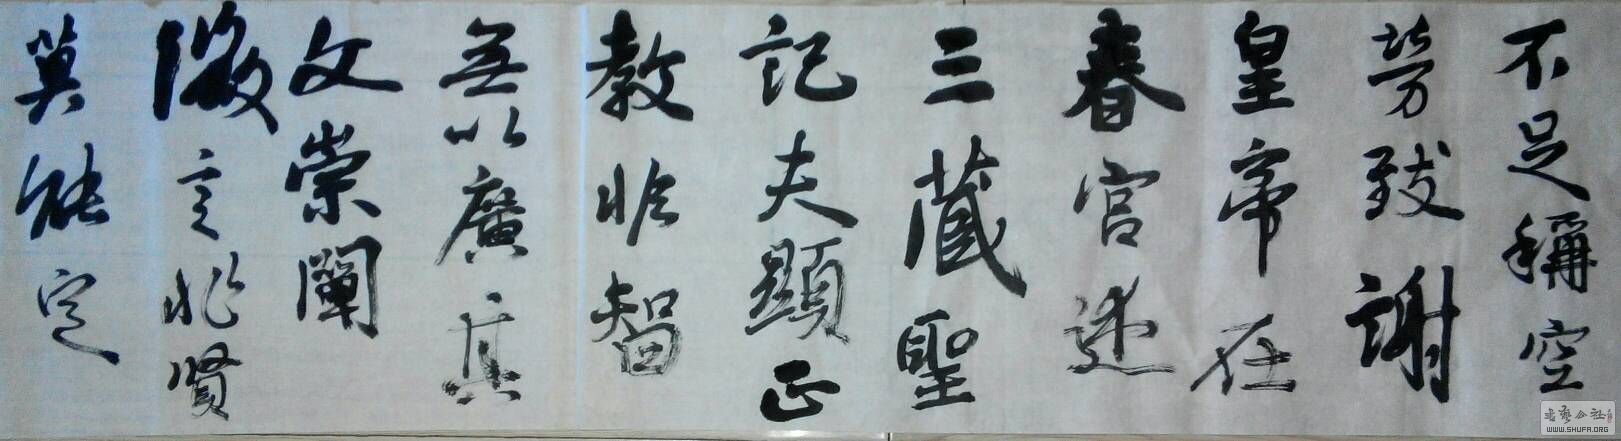 不足稱空
勞致謝
皇帝在
春宮述
三藏聖
記夫顯正
教非智
無以廣其
文崇闡
微言非賢
莫能定
WWW.SHUFA.ORG